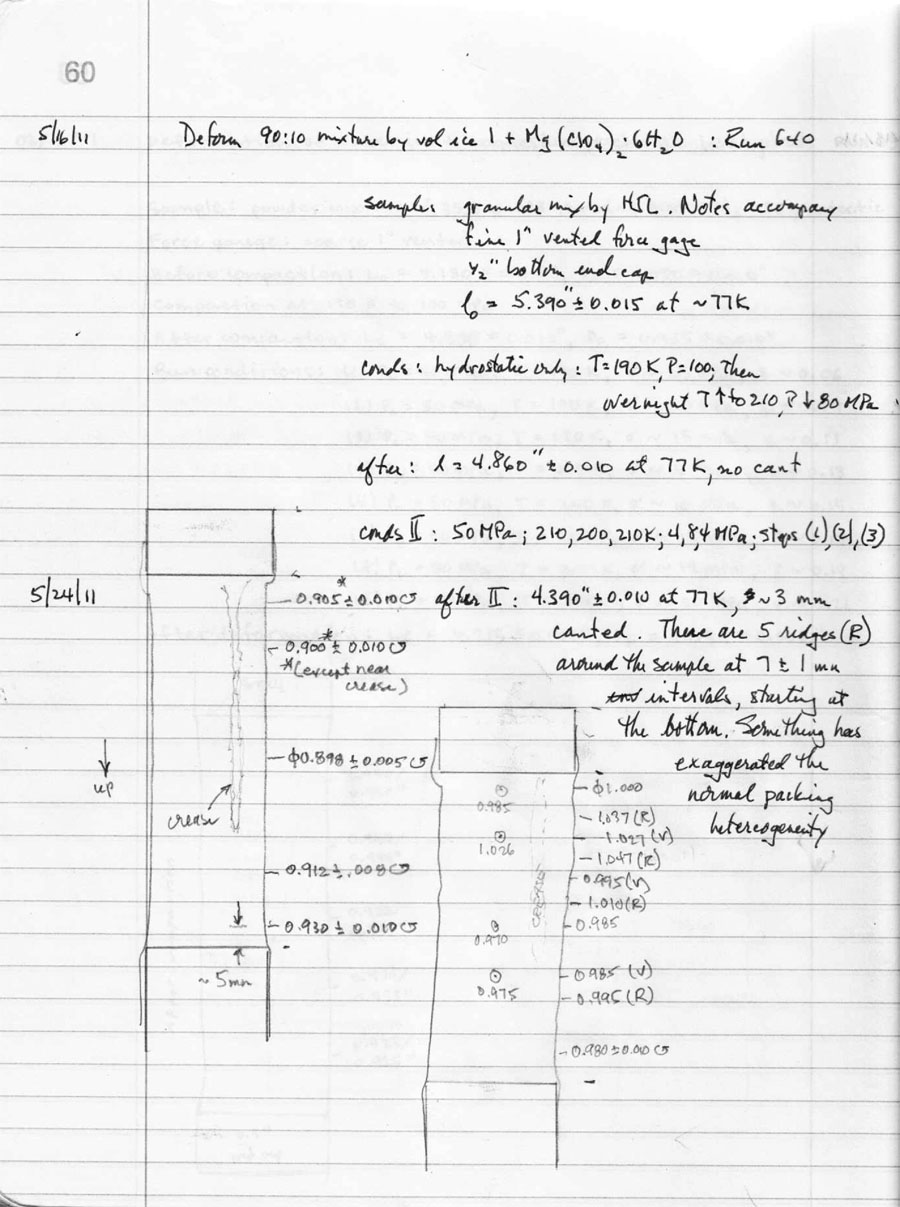 60
5/16/11 Deform 90:10 mixture by vol ice 1 + Mg(ClO4)2·6H2O : Run 640
sample: granular mix by HSL. Notes accompany
fine 1" vented force gage
1/2" bottom end cap
l0 = 5.390" ± 0.015 at ~77K
conds: hydrostatic only: T=190 K, P=100, then
overnight T↑ to 210, P↓80 MPa
after: l = 4.860" ± 0.010 at 77K, no cant
conds II: 50 MPa; 210, 200, 210K; 4, 8, 4 MPa; steps (1), (2), (3)
5/24/11 after II: 4.390" ± 0.010 at 77K, ~3 mm
canted. There are 5 ridges (R)
around the sample at 7 ± 1 mm
intervals, starting at
the bottom. Something has
exaggerated the
normal packing
heterogeneity
*
0.905 ± 0.010
0.900* ± 0.010
*(except near
crease)
ϕ0.898 ± 0.005
up
crease
0.912 ± .008
0.930 ± 0.010
~5mm
ϕ1.000
0.985
1.037 (R)
1.027 (V)
1.026
1.047 (R)
0.995 (V)
1.010 (R)
0.985
0.970
0.985 (V)
0.975
0.995 (R)
0.980 ± 0.010